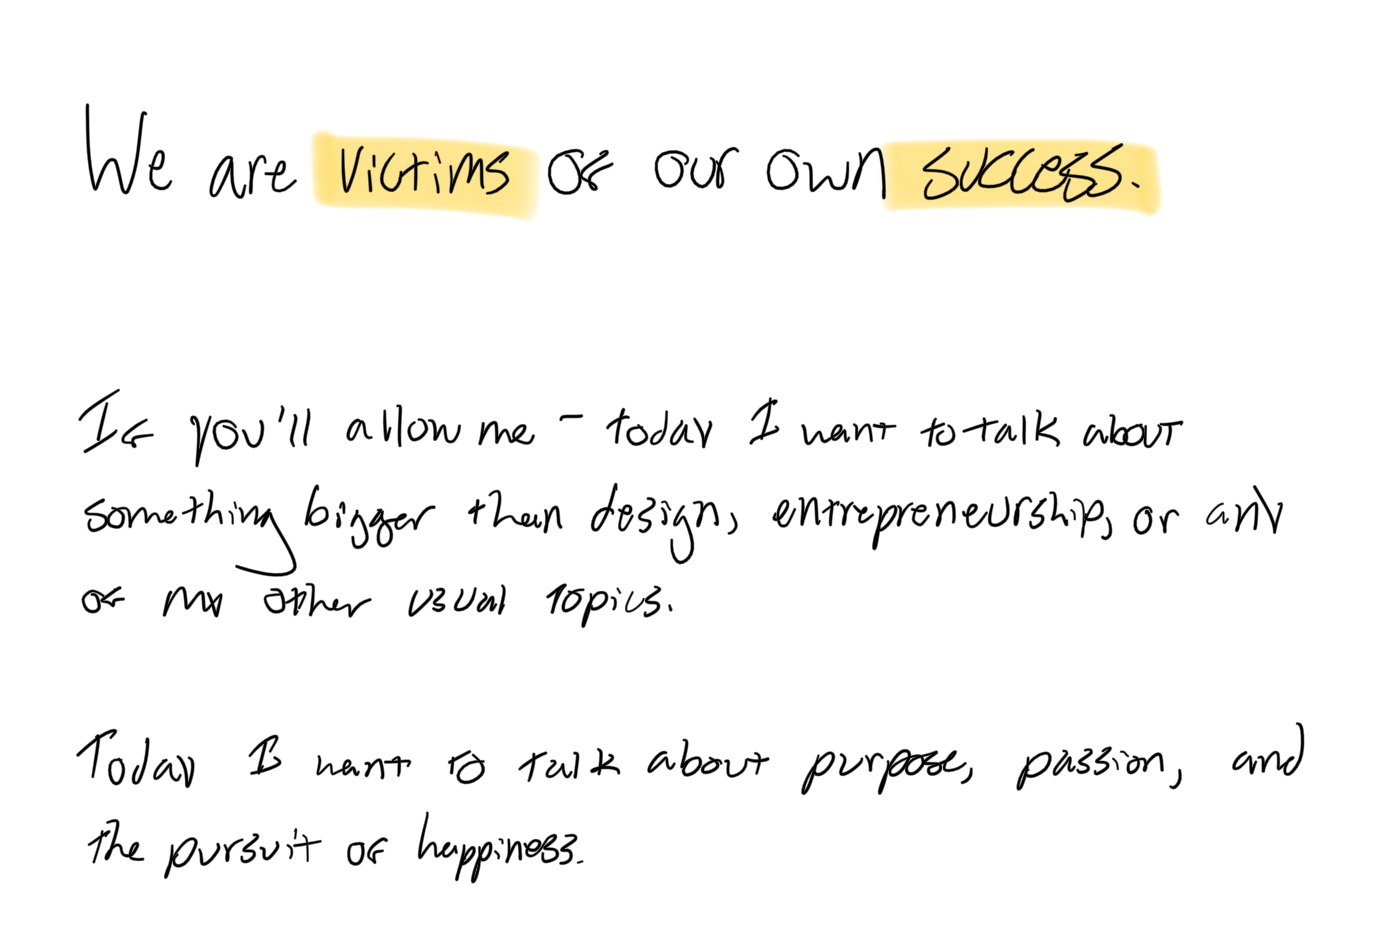 We are victims of our own success.
If you'll allow me - today I want to talk about
something bigger than design, entrepreneurship, or any
of my other usual topics.
Today I want to talk about purpose, passion, and
the pursuit of happiness.